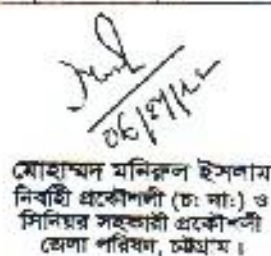 মোহাম্মদ মনিরুল ইসলাম
নির্বাহী প্রকৌশলী (চঃ দাঃ) ও
সিনিয়র সহকারী প্রকৌশলী
জেলা পরিষদ, চট্টগ্রাম।